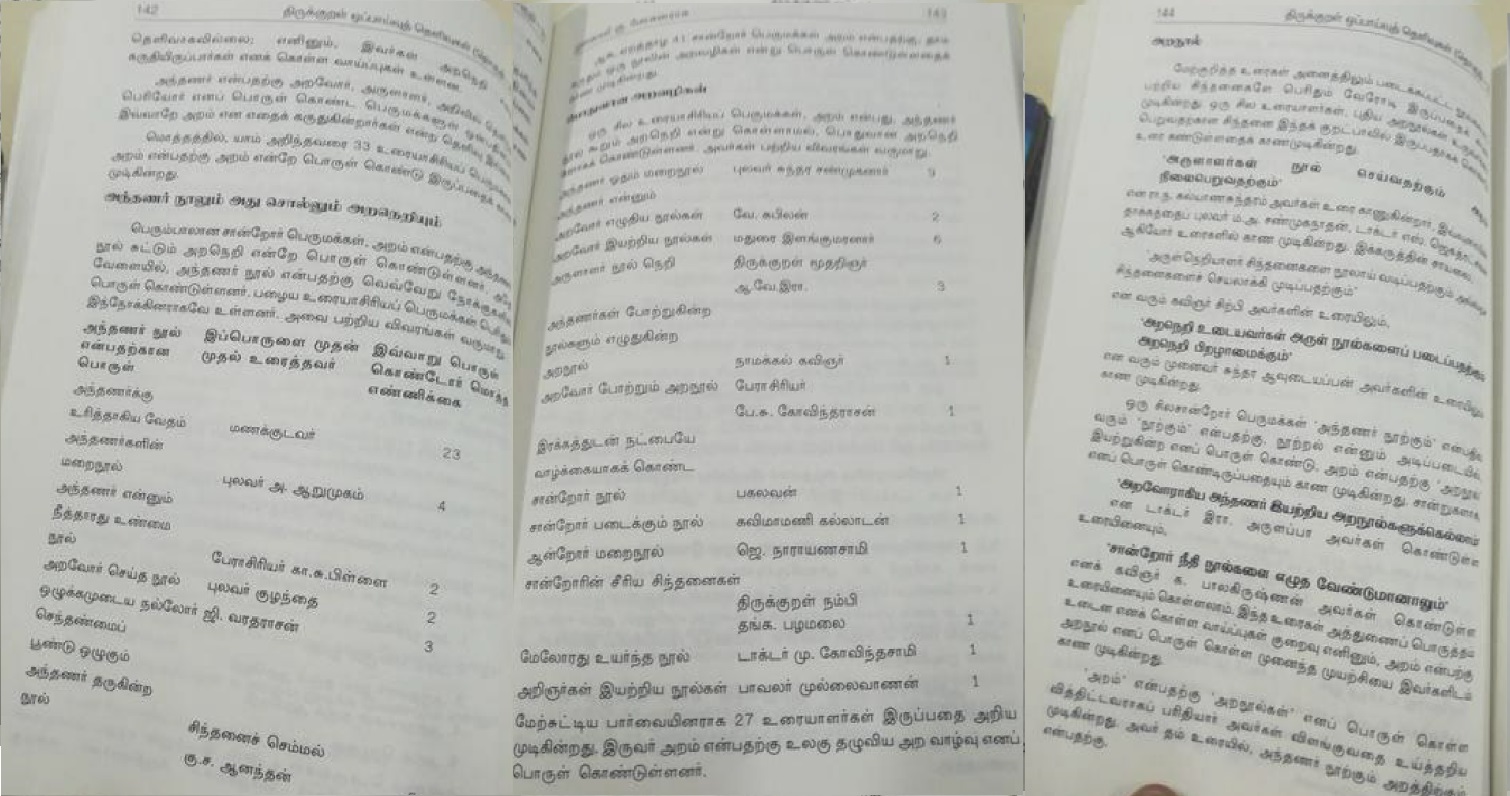 142 திருக்குறள் ஒப்பாய்வுத் தெளிவுகள்
தெளிவாகவில்லை; எனினும், இவர்கள் அறநெறி
கருதியிருப்பார்கள் எனக் கொள்ள வாய்ப்புகள் உள்ளன.
அந்தணர் என்பதற்கு அறவோர், அருளாளர், அறிவில்
பெரியோர் எனப் பொருள் கொண்ட பெருமக்களுள்
இவ்வாறே அறம் என எதைக் கருதுகின்றார்கள் என்ற
மொத்தத்தில், யாம் அறிந்தவரை 33 உரையாசிரியப்
அறம் என்பதற்கு அறம் என்றே பொருள் கொண்டு
முடிகின்றது.
அந்தணர் நூலும் அது சொல்லும் அறநெறியும்
பெரும்பாலான சான்றோர் பெருமக்கள், அறம் என்பதற்கு
நூல் சுட்டும் அறநெறி என்றே பொருள் கொண்டுள்ளனர்.
வேளையில், அந்தணர் நூல் என்பதற்கு வெவ்வேறு
பொருள் கொண்டுள்ளனர். பழைய உரையாசிரியப் பெருமக்கள்
இந்நோக்கினராகவே உள்ளனர். அவை பற்றிய விவரங்கள் வருமாறு
அந்தணர் நூல் இப்பொருளை முதன் இவ்வாறு பொருள்
என்பதற்கான முதல் உரைத்தவர் கொண்டோர் மொத்த
பொருள் எண்ணிக்கை
அந்தணர்க்கு
உரித்தாகிய வேதம் மணக்குடவர் 23
அந்தணர்களின்
மறைநூல் புலவர் அ. ஆறுமுகம் 4
அந்தணர் என்னும்
நீத்தாரது உண்மை
நூல் பேராசிரியர் கா.சு.பிள்ளை 2
அறவோர் செய்த நூல் புலவர் குழந்தை 2
ஒழுக்கமுடைய நல்லோர் ஜி. வரதராசன் 3
செந்தண்மைப்
பூண்டு ஒழுகும்
அந்தணர் தருகின்ற
நூல்
சிந்தனைச் செம்மல்
கு.ச. ஆனந்தன்
143
பொதுவான அறவழிகள்
ஒரு சில உரையாசிரியப் பெருமக்கள், அறம் என்பது, அந்தணர்
நூல் கூறும் அறநெறி என்று கொள்ளாமல், பொதுவான அறநெறி
கொண்டுள்ளனர். அவர்கள் பற்றிய விவரங்கள் வருமாறு.
அந்தணர் ஓதும் மறைநூல் புலவர் சுந்தர சண்முகனார் 9
அந்தணர் என்னும்
அறவோர் எழுதிய நூல்கள் வே. கபிலன் 2
அறவோர் இயற்றிய நூல்கள் மதுரை இளங்குமரனார் 6
அருளாளர் நூல் நெறி திருக்குறள் மூதறிஞர்
ஆ.வே.இரா. 3
அந்தணர்கள் போற்றுகின்ற
நூல்களும் எழுதுகின்ற
அறநூல் நாமக்கல் கவிஞர் 1
அறவோர் போற்றும் அறநூல் பேராசிரியர்
பே.க. கோவிந்தராசன் 1
இரக்கத்துடன் நட்பையே
வாழ்க்கையாகக் கொண்ட
சான்றோர் நூல் பகலவன் 1
சான்றோர் படைக்கும் நூல் கவிமாமணி கல்லாடன் 1
ஆன்றோர் மறைநூல் ஜெ. நாராயணசாமி 1
சான்றோரின் சீரிய சிந்தனைகள்
திருக்குறள் நம்பி
தங்க. பழமலை 1
மேலோரது உயர்ந்த நூல் டாக்டர் மு. கோவிந்தசாமி 1
அறிஞர்கள் இயற்றிய நூல்கள் பாவலர் முல்லைவாணன் 1
மேற்சுட்டிய பார்வையினராக 27 உரையாளர்கள் இருப்பதை அறிய
முடிகின்றது. இருவர் அறம் என்பதற்கு உலகு தழுவிய அற வாழ்வு எனப்
பொருள் கொண்டுள்ளனர்.
144 திருக்குறள் ஒப்பாய்வுத் தெளிவுகள்
அறநூல்
மேற்குறித்த உரைகள் அனைத்திலும்
பற்றிய சிந்தனைகளே பெரிதும் வேரோடி
முடிகின்றது. ஒரு சில உரையாளர்கள், புதிய அறநூல்கள்
பெறுவதற்கான சிந்தனை இந்தக் குறட்பாவில்
உரை கண்டுள்ளதைக் காணமுடிகின்றது.
'அருளாளர்கள் நூல் செய்வதற்கும்
நிலைபெறுவதற்கும்'
என ரா.ந. கல்யாணசுந்தரம் அவர்கள் உரை காணுகின்றார்.
தாக்கத்தைப் புலவர் ம.அ. சண்முகநாதன், டாக்டர் எஸ்.
ஆகியோர் உரைகளில் காண முடிகின்றது. இக்கருத்தின் சாயலை,
'அருள்நெறியாளர் சிந்தனைகளை நூலாய் வடிப்பதற்கும்
சிந்தனைகளைச் செயலாக்கி முடிப்பதற்கும்'
என வரும் கவிஞர் சிற்பி அவர்களின் உரையிலும்,
'அறநெறி உடையவர்கள் அருள் நூல்களைப் படைப்பதற்கும்
அறநெறி பிறழாமைக்கும்'
என வரும் முனைவர் சுந்தர ஆவுடையப்பன் அவர்களின் உரையிலும்
காண முடிகின்றது.
ஒரு சில சான்றோர் பெருமக்கள் 'அந்தணர் நூற்கும்' என்பதில்
வரும் 'நூற்கும்' என்பதற்கு, நூற்றல் என்னும் அடிப்படையில்
இயற்றுகின்ற எனப் பொருள் கொண்டு, அறம் என்பதற்கு 'அறநூல்'
எனப் பொருள் கொண்டிருப்பதையும் காண முடிகின்றது. சான்றுகளாக,
'அறவோராகிய அந்தணர் இயற்றிய அறநூல்களுக்கெல்லாம்'
என டாக்டர் இரா. அருளப்பா அவர்கள் கொண்டுள்ள
உரையினையும்,
'சான்றோர் நீதி நூல்களை எழுத வேண்டுமானாலும்'
எனக் கவிஞர் க. பாலகிருஷ்ணன் அவர்கள் கொண்டுள்ள
உரையினையும் கொள்ளலாம். இந்த உரைகள் அத்துணைப் பொருத்தம்
உடைன எனக் கொள்ள வாய்ப்புகள் குறைவு எனினும், அறம் என்பதற்கு
அறநூல் எனப் பொருள் கொள்ள முனைந்த முயற்சியை இவர்களிடம்
காண முடிகின்றது.
'அறம்' என்பதற்கு 'அறநூல்கள்' எனப் பொருள் கொள்ள
வித்திட்டவராகப் பரிதியார் அவர்கள் விளங்குவதை உய்த்தறிய
முடிகின்றது. அவர் தம் உரையில், அந்தணர் நூற்கும் அறத்திற்கும்
என்பதற்கு,